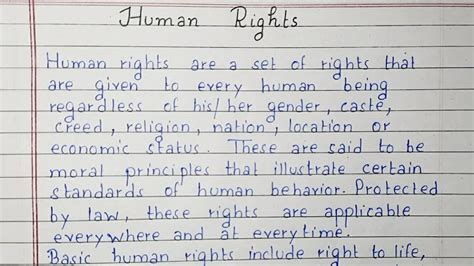 Human Rights
Human rights are a set of rights that
are given to every human being
regardless of his/her gender, caste,
creed, religion, nation, location or
economic status. These are said to be
moral principles that illustrate certain
standards of human behavior. Protected
by law, these rights are applicable
everywhere and at everytime.
Basic human rights include right to life,